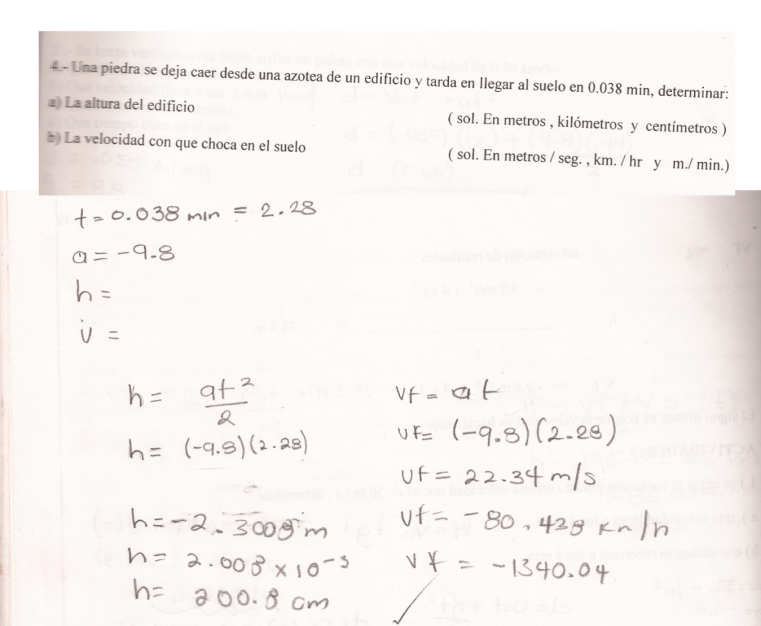 4.- Una piedra se deja caer desde una azotea de un edificio y tarda en llegar al suelo en 0.038 min, determinar:
a) La altura del edificio ( sol. En metros , kilómetros y centímetros )
b) La velocidad con que choca en el suelo ( sol. En metros / seg. , km. / hr y m./ min.)
t = 0.038 min = 2.28
a = -9.8
h =
v =
h = at²/2
h = (-9.8)(2.28)
h = -2.3008 m
h = 2.008 x 10⁻³
h = 200.8 cm
Vf = at
Vf = (-9.8)(2.28)
Vf = 22.34 m/s
Vf = -80.428 Km/h
Vf = -1340.04